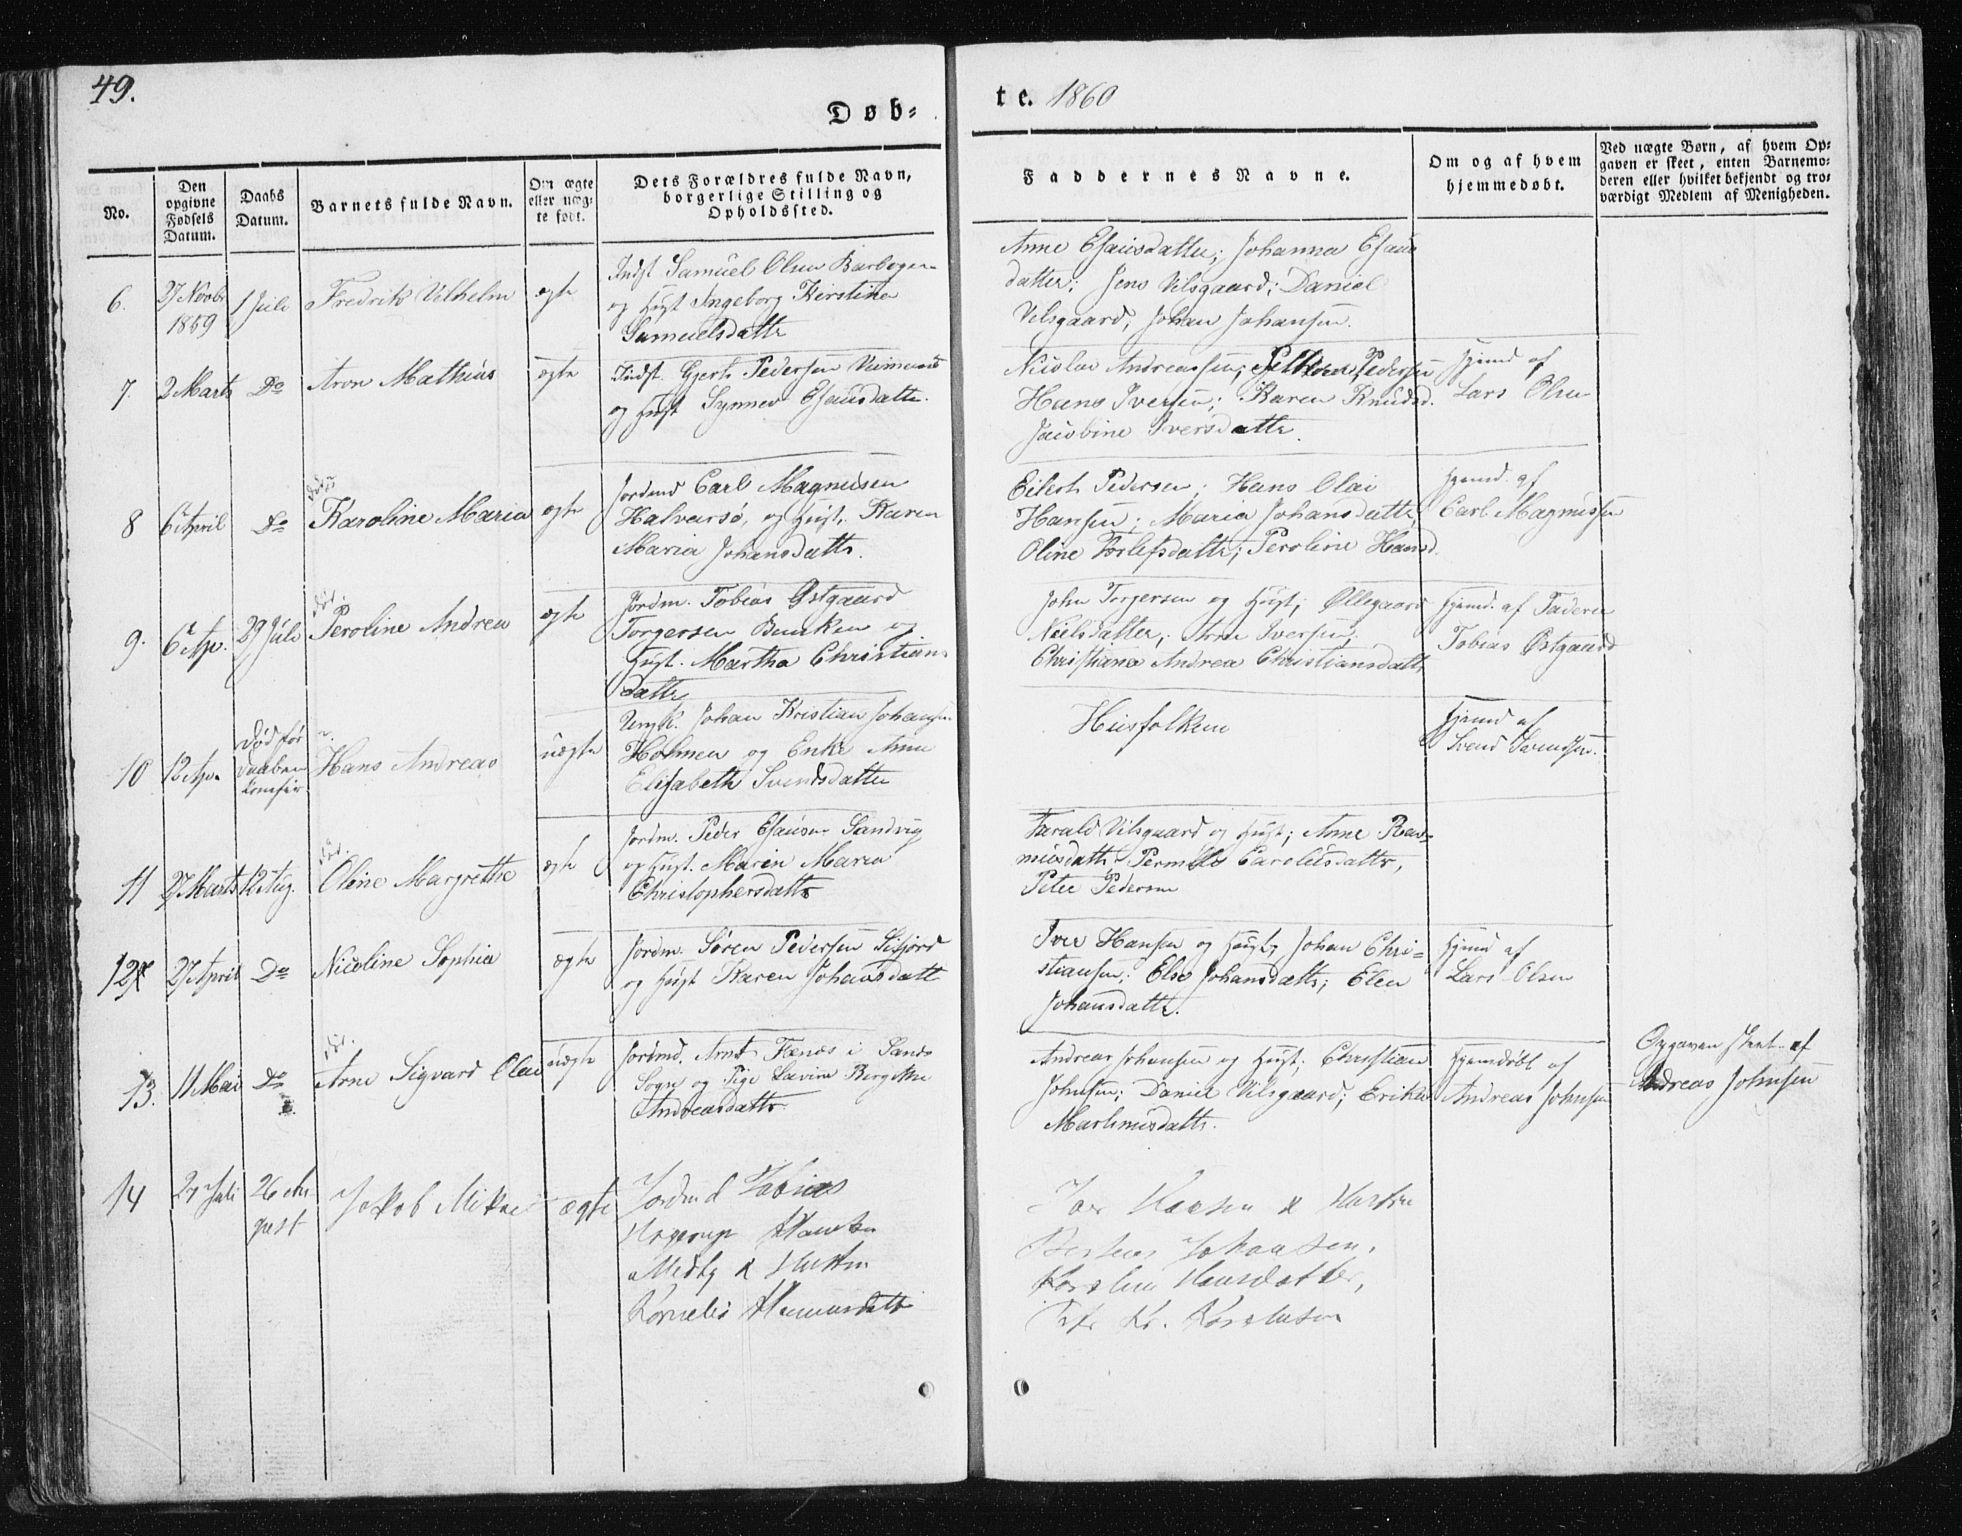 49.
Døb-
te. 1860
No.
Den opgivne Fødsels Datum.
Daabs Datum.
Barnets fulde Navn.
Om ægte eller uægte født.
Dets Forældres fulde Navn, borgerlige Stilling og Opholdssted.
Faddernes Navne.
Om og af hvem hjemmedøbt.
Ved uægte Børn, af hvem Op-
gaven er skeet, enten Barnemo-
deren eller hvilket bekjendt og tro-
værdigt Medlem af Menigheden.
6. 27 Novbr 1859 1 Juli Fredrik Vilhelm ægte
Indst Samuel Olsen
og Hust Ingeborg Kirstine
Samuelsdatter
Anne Esaiusdatter; Johanna Esaiu
datter; Jens Vilsgaard; Daniel
Vilsgaard; Johan Johansen.
7. 2 Marts Do Aron Mathias ægte
Indst. Gjert Pedersen
og Hust Synnev Esaiusdatter.
Nicolai Andreassen; Pedersen
Hans Iversen; Karen Knudsd.
Jacobine Iversdatter.
Hjemd af
Lars Olsen
8 6 April Do Karoline Maria ægte
Jordmd Carl Magnusen
Halvarsø, og Hust. Karen
Maria Johansdatter.
Eilert Pedersen; Hans Olai
Hansen; Maria Johansdatter,
Oline Torlefsdatter; Peroline Hansd.
Hjemd. af
Carl Magnussen
9. 6 Apr. 29 Juli døt. Peroline Andrea ægte
Jordm. Tobias Østgaard
Torgersen Bunken og
Hust. Martha Christians
datter
John Torgersen og Hust; Øllegaard
Nielsdatter; Arn Iversen;
Christiana Andrea Christiansdatter
Hjemd. af Faderen
Tobias Østgaard
10 12 Apr. Død før Daaben Hans Andreas uægte
Ungk. Johan Kristian Johansen
Holmen og Enke Anne
Elisabeth Svendsdatter
Husfolkene
Hjemd af
Svend Svendsen.
11 27 Marts 12 Aug. døt. Oline Margrethe ægte
Jordm. Peder Esaiusen Sandvig
og Hust. Maren Maria
Christophersdatter
Harald Vilsgaard og Hust; Anne Ras-
musdatter; Pernille Caroliusdatter,
Peter Pedersen
12 27 April Do Nicoline Sophia ægte
Jordm. Søren Pedersen Sifjord
og Hust Karen Johansdatt
Iver Hansen og Hust, Johan Chri-
stiansen; Else Johansdatter; Elen
Johansdatter.
Hjemd af
Lars Olsen
13. 11 Mai Do Arne Sigvard Olai uægte
Jordmd. Arnt Fænes i Sands
Sogn og Pige Lavine Bergitte
Andreasdatter
Andreas Johnsen og Hust; Christian
Johnsen; Daniel Vilsgaard; Erika
Martinusdatter.
Hjemdøbt af
Andreas Johnsen
Opgaven skeet af
Andreas Johnsen
14 27 Juli 26 August Jakob Mikael ægte
Jordmd Tobias
Hagerup Hansen
Medby & Hustru
Kornelia
Iver Hansen & Hustru
Johansen,
Hansdatter,
Kr.